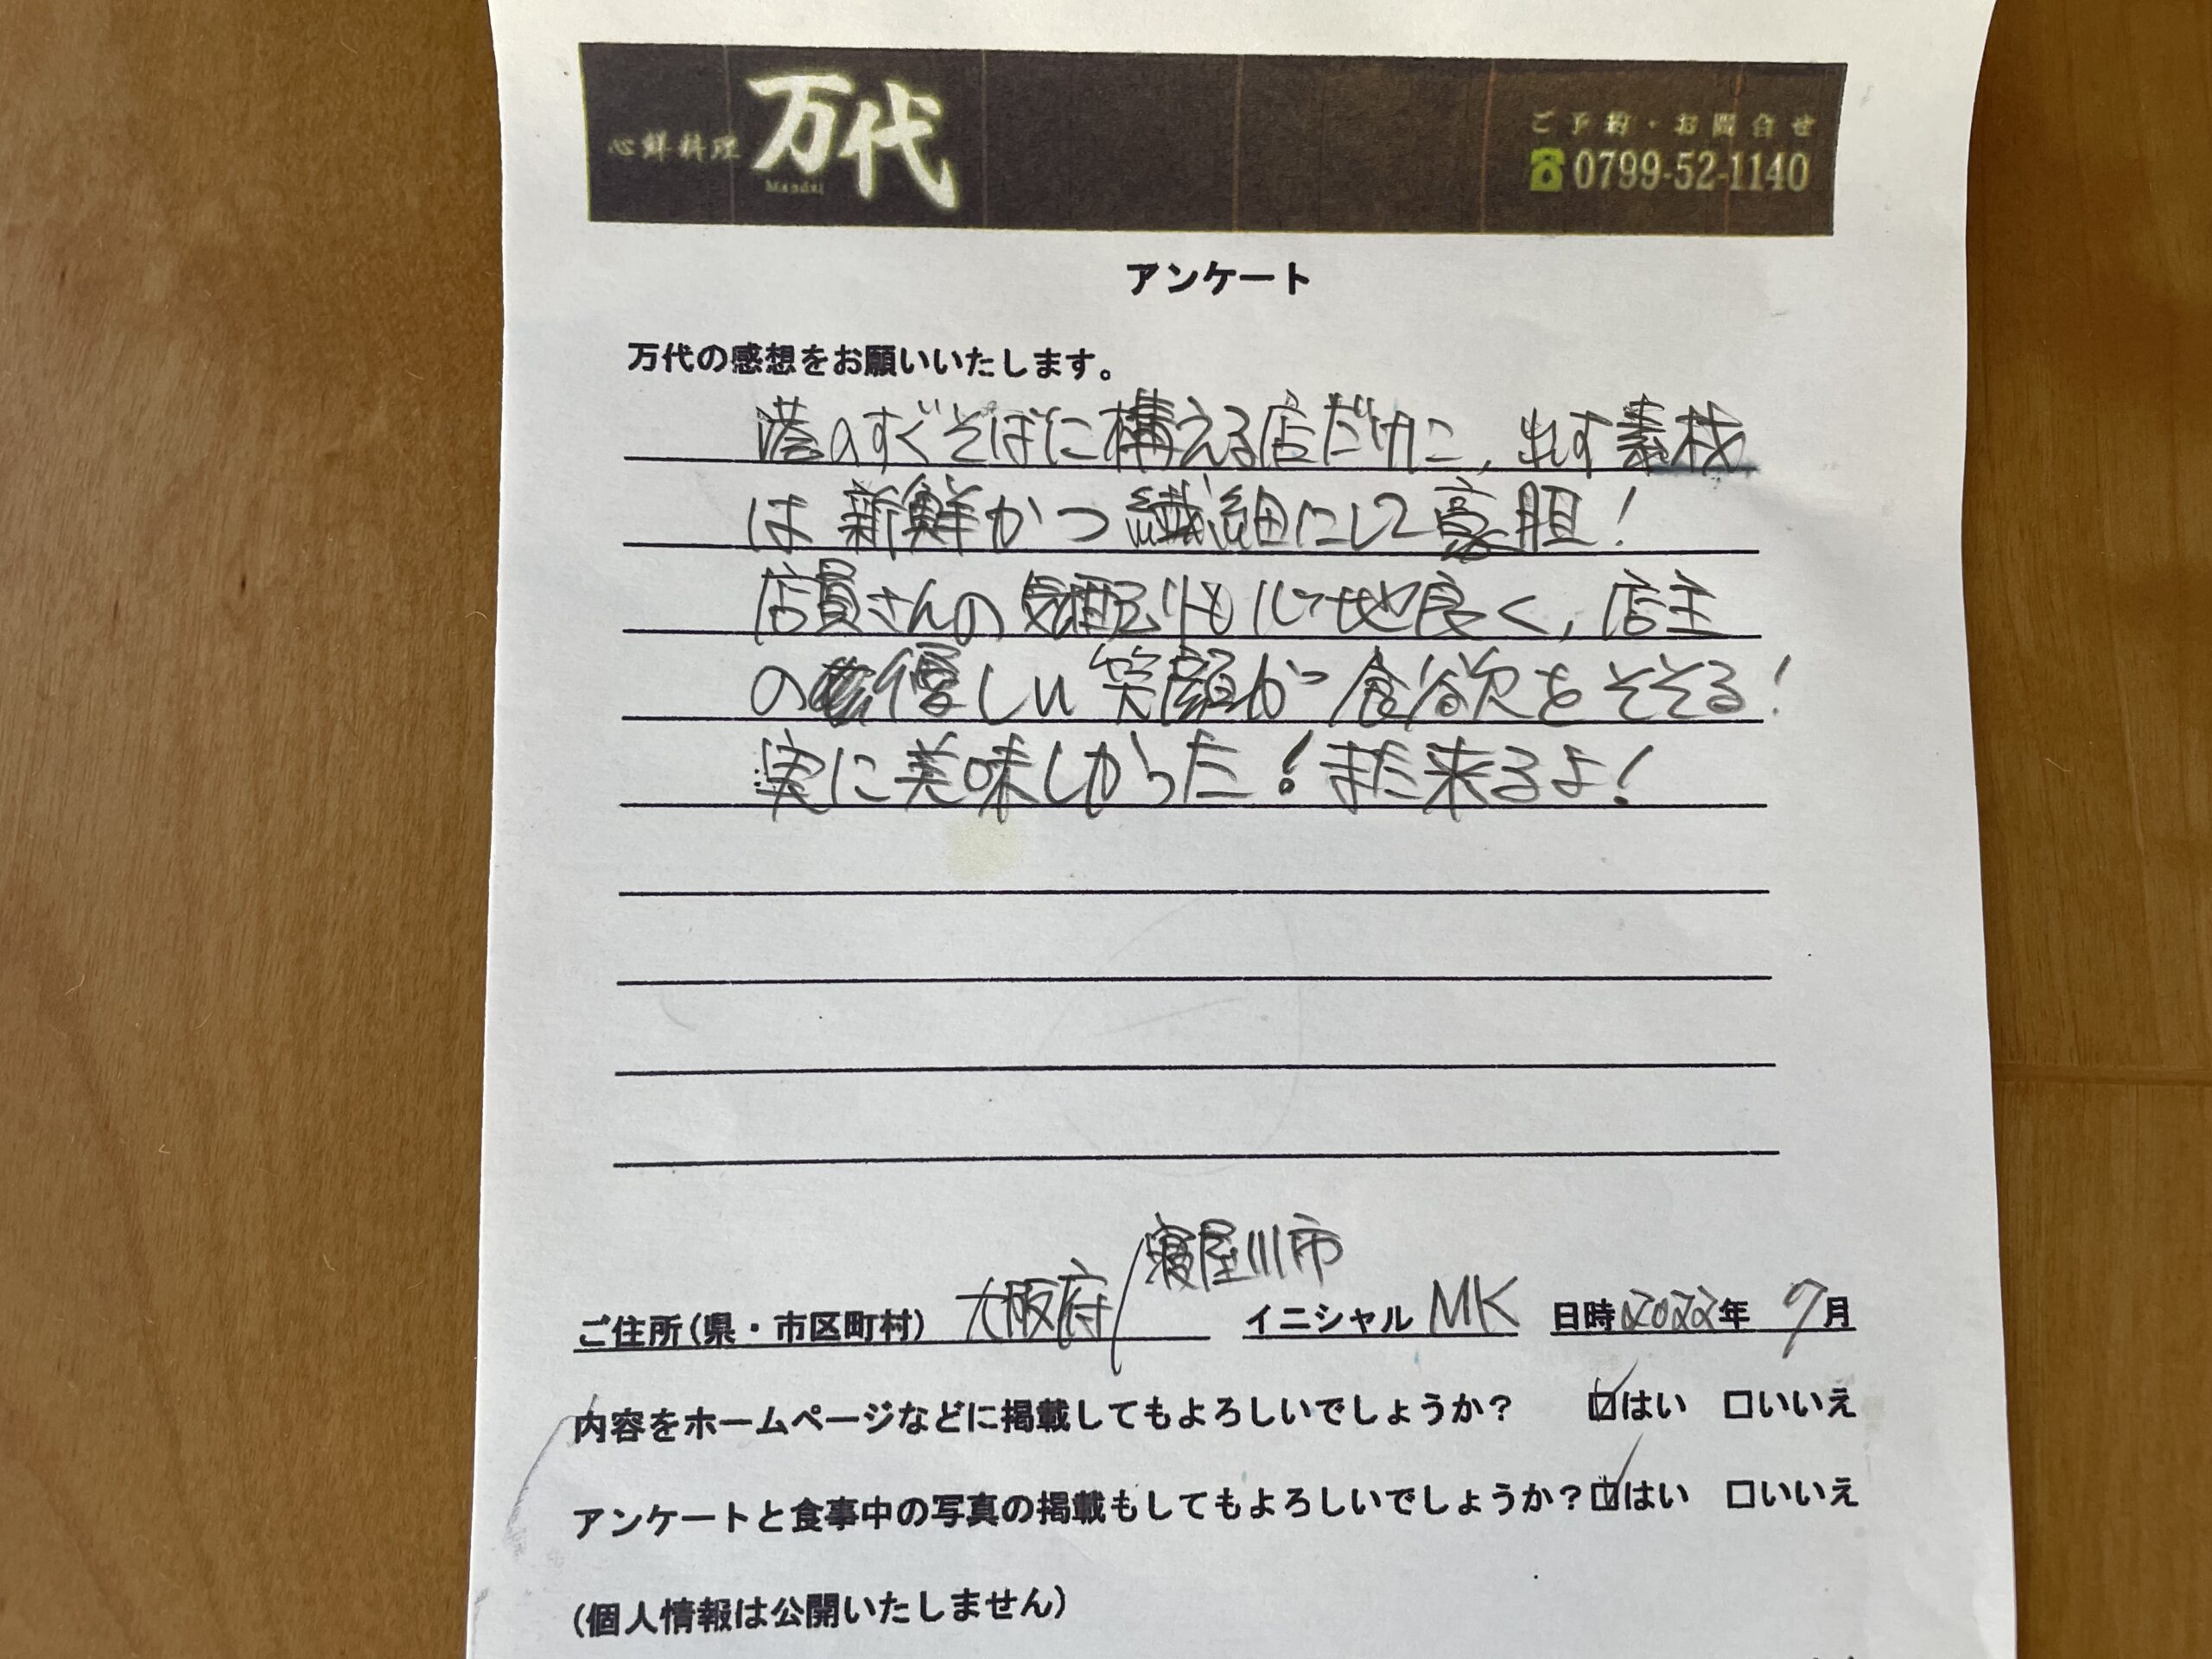 心鮮料理 万代
Mandai
ご予約・お問合せ
☎0799-52-1140
アンケート
万代の感想をお願いいたします。
港のすぐそばに構える店だけに、出す素材
は新鮮かつ繊細にして豪胆！
店員さんの気配りも心地良く、店主
の優しい笑顔が食欲をそそる！
実に美味しかった！また来るよ！
寝屋川市
ご住所(県・市区町村) 大阪府/ イニシャル MK 日時2022年 7月
内容をホームページなどに掲載してもよろしいでしょうか？ ☑はい □いいえ
アンケートと食事中の写真の掲載もしてもよろしいでしょうか？☑はい □いいえ
(個人情報は公開いたしません)